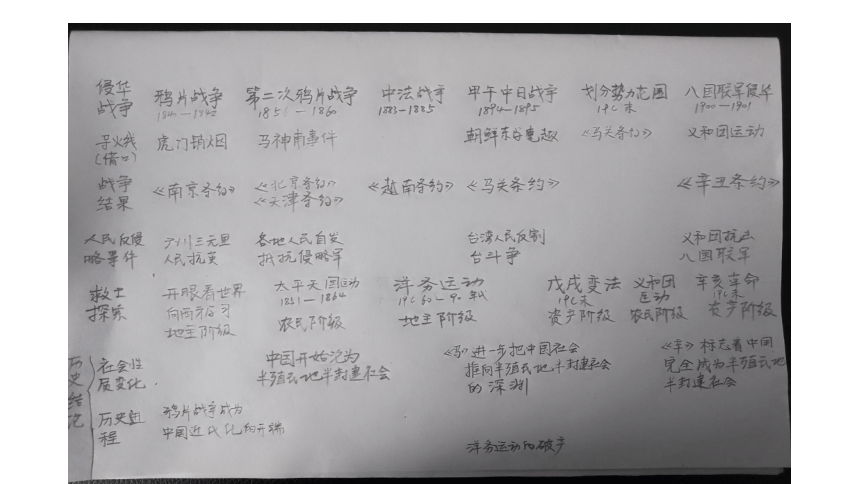 侵华 鸦片战争 第二次鸦片战争 中法战争 甲午中日战争 划分势力范围 八国联军侵华
战争 1840—1842 185 — 1860 1883—1885 1894—1895 19C末 1900—1901
导火线 虎门销烟 马神甫事件 朝鲜东学党起 《马关条约》 义和团运动
(借口)
战争 《南京条约》 《北京条约》 《越南条约》 《马关条约》 《辛丑条约》
结果 《天津条约》
人民反侵 广州三元里 各地人民自发 台湾人民反割 义和团抗击
略事件 人民抗英 抵抗侵略军 台斗争 八国联军
救亡 开眼看世界 太平天国运动 洋务运动 戊戌变法 义和团 辛亥革命
探索 向西方学习 1851—1864 19C 60—90年代 19C末 运动 19C末
地主阶级 农民阶级 地主阶级 资产阶级 农民阶级 资产阶级
历史结论
社会性 中国开始沦为 《马》进一步把中国社会 《辛》标志着中国
质变化. 半殖民地半封建社会 推向半殖民地半封建社会 完全成为半殖民地
的深渊 半封建社会
历史进 鸦片战争成为
程 中国近代化的开端
洋务运动的破产